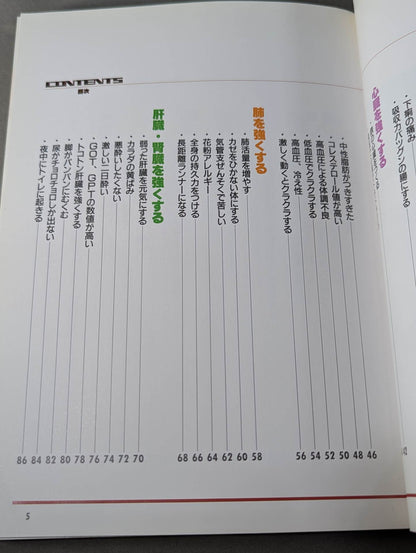 CONTENTS
目次
痢の痛み
吸収力バツグンの腸にする
心臓を強くする
・中性脂肪がつきすぎた 46
・コレステロール値が高い 48
・高血圧による体調不良 50
・低血圧でクラクラする 52
・高血圧、冷え性 54
・激しく動くとクラクラする 56
肺を強くする
・肺活量を増やす 58
・カゼをひかない体にする 60
・気管支ぜんそくで苦しい 62
・花粉アレルギー 64
・全身の持久力をつける 66
・長距離ランナーになる 68
肝臓・腎臓を強くする
・弱った肝臓を元気にする 70
・カラダの黄ばみ 72
・悪酔いしたくない 74
・激しい二日酔い 76
・GOT、GPTの数値が高い 78
・トコトン肝臓を強くする 80
・脚がパンパンにむくむ 82
・尿がチョロチョロしか出ない 84
・夜中にトイレに起きる 86
5